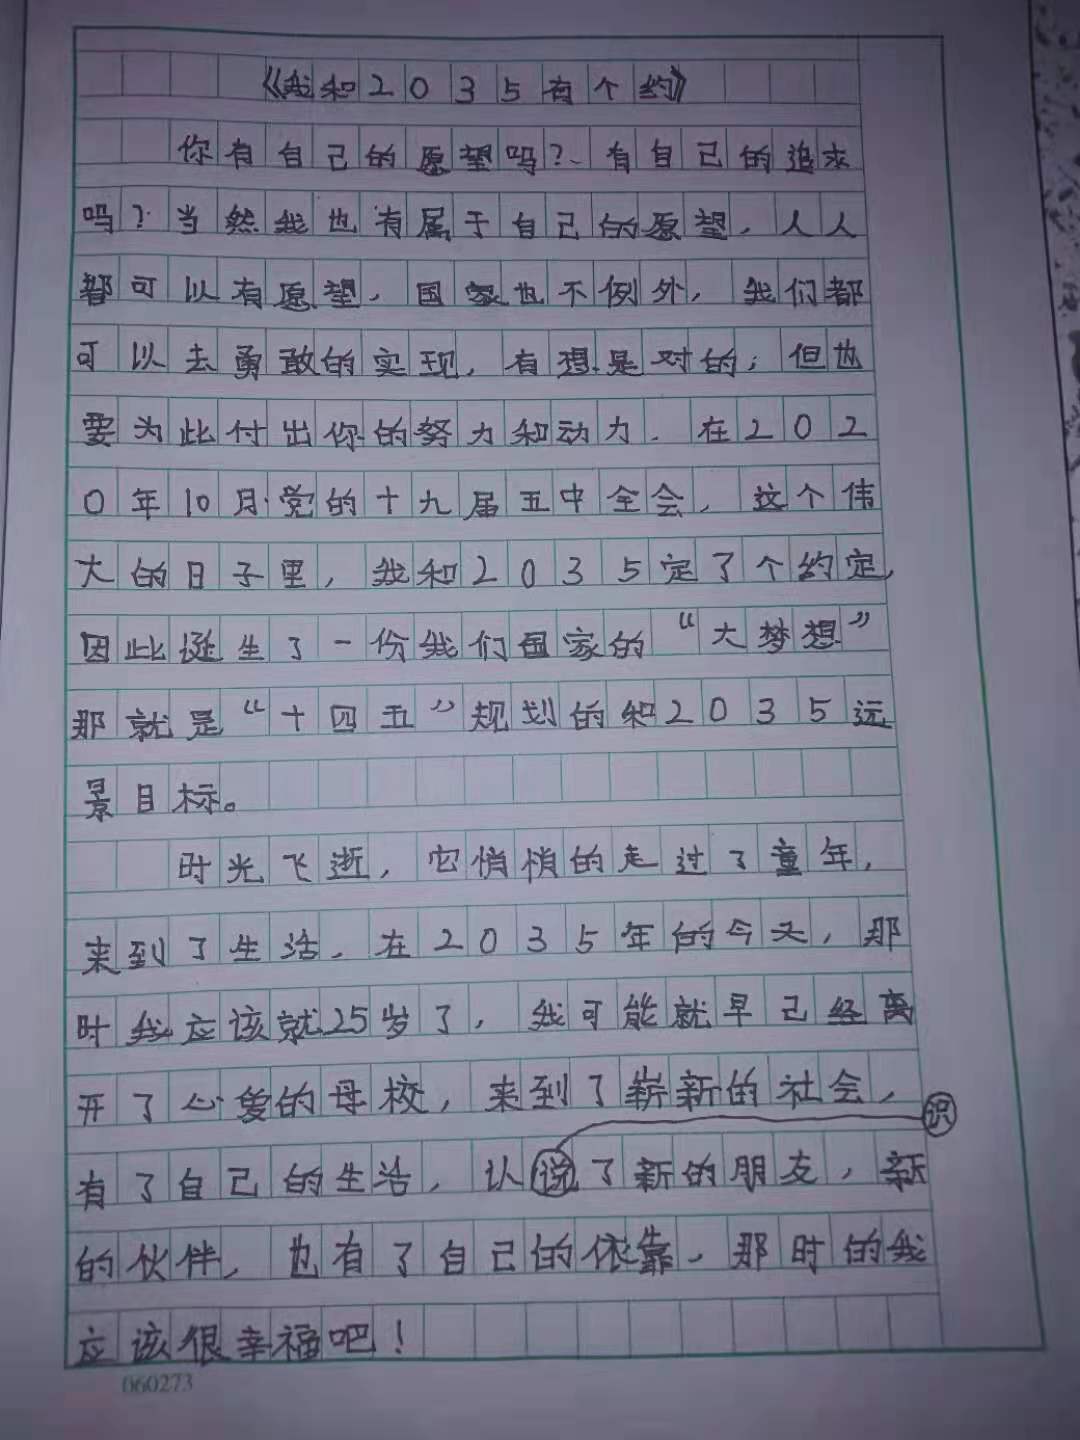 《我和2035有个约》
你有自己的愿望吗？、有自己的追求
吗？当然我也有属于自己的愿望，人人
都可以有愿望，国家也不例外，我们都
可以去勇敢的实现，有想是对的；但也
要为此付出你的努力和动力．在202
0年10月党的十九届五中全会，这个伟
大的日子里，我和2035定了个约定，
因此诞生了一份我们国家的“大梦想”
那就是“十四五”规划的和2035远
景目标。
时光飞逝，它悄悄的走过了童年，
来到了生活，在2035年的今天，那
时我应该就25岁了，我可能就早已经离
开了心爱的母校，来到了崭新的社会，
识
有了自己的生活，认说了新的朋友，新
的伙伴，也有了自己的依靠，那时的我
应该很幸福吧！
060273